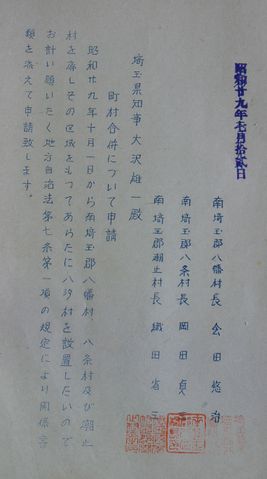 昭和廿九年七月拾貳日
南埼玉郡八幡村長 会田悠治
南埼玉郡八条村長 岡田貞
南埼玉郡潮止村長 織田省三
埼玉県知事大沢雄一殿
町村合併について申請
昭和廿九年十月一日から南埼玉郡八幡村、八条村及び潮止
村を廃しその区域をもつてあらたに八汐村を設置したいので
お計い願いたく地方自治法第七条第一項の規定により関係書
類を添えて申請致します。